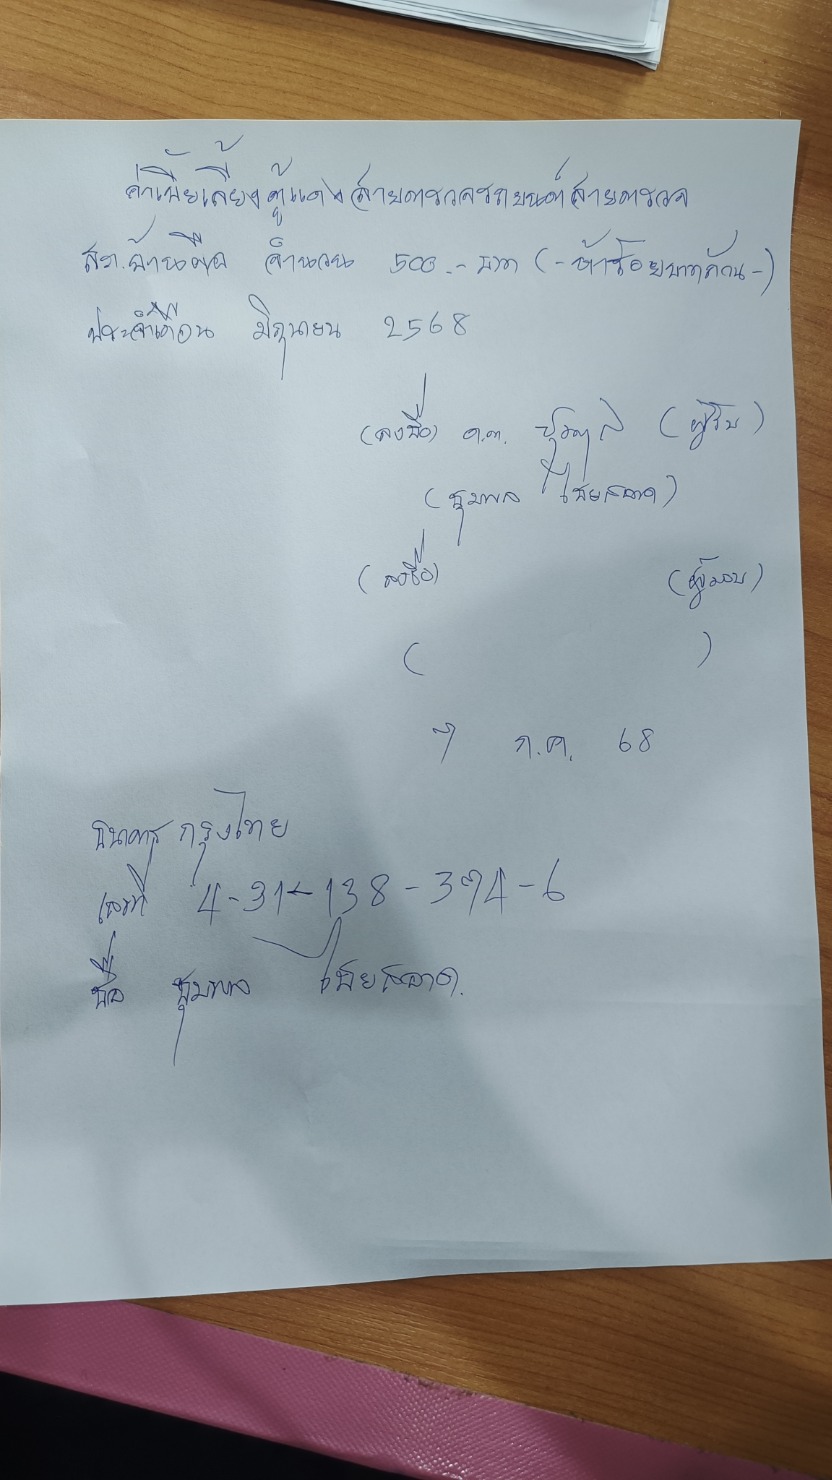 ค่าเบี้ยเลี้ยงตู้แดงสายตรวจรถยนต์สายตรวจ
สภ. จำนวน 500.- บาท (-ห้าร้อยบาทถ้วน-)
ประจำเดือน มิถุนายน 2568
(ลงชื่อ) ด.ต. (ผู้รับ)
(ชุมพล ไชยสลาด)
(ลงชื่อ) (ผู้มอบ)
( )
7 ก.ค. 68
ธนาคาร กรุงไทย
เลขที่ 4-31-138-374-6
ชื่อ ชุมพล ไชยสลาด.